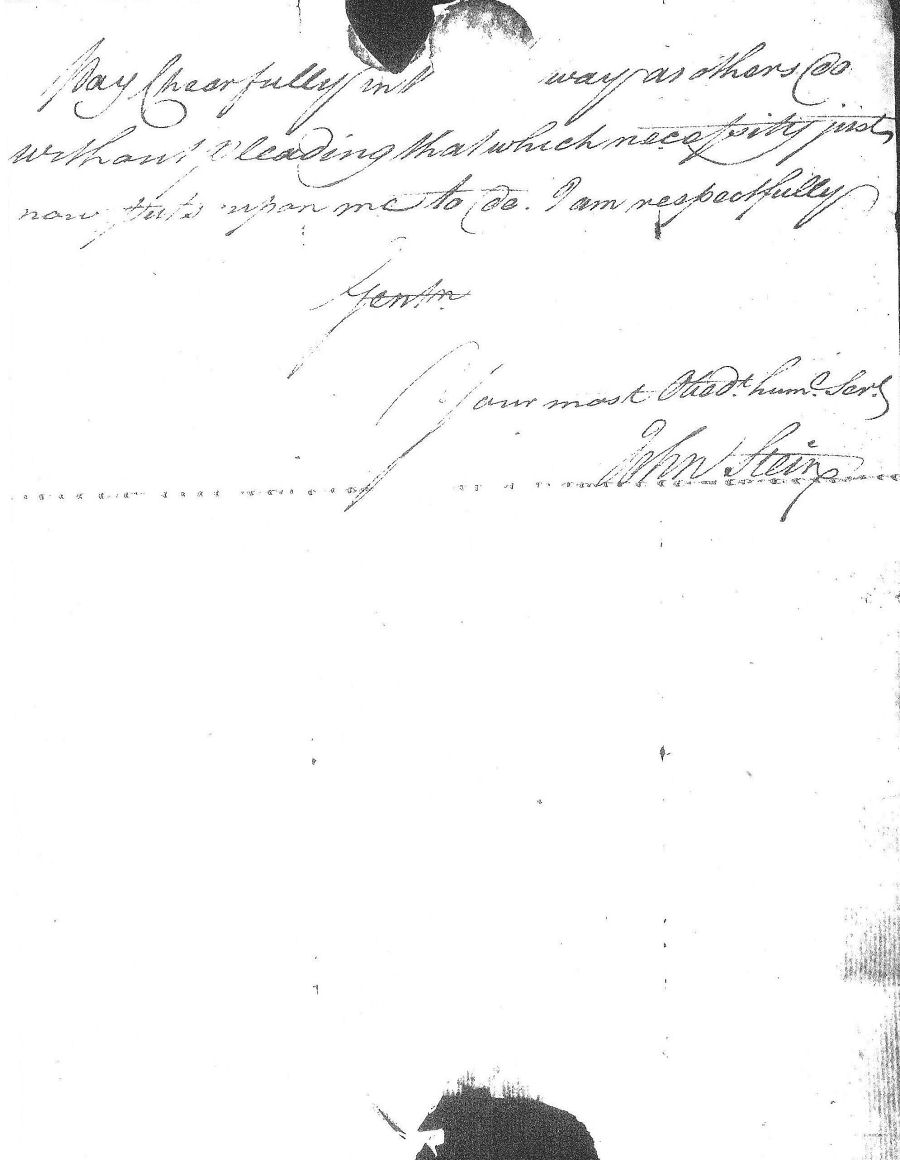 Pay Chearfully in way as others do
without pleading that which necessity just
now puts upon me to do. I am respectfully
Gentn.
Your most Obedt. hume. Servt
John Stein